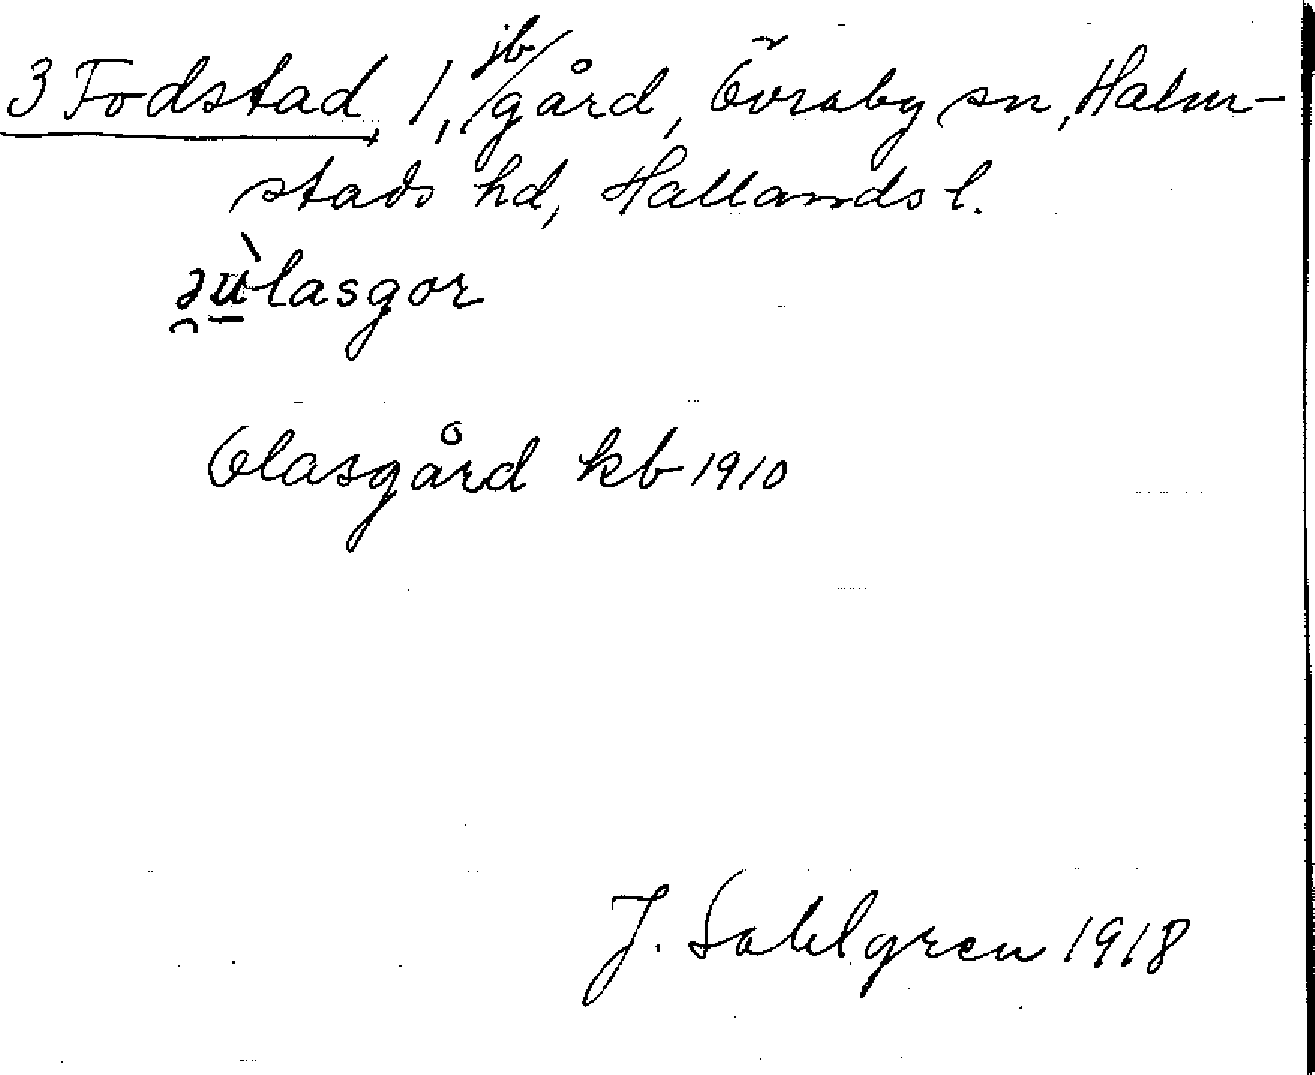 3 Fodstad, 1, jb/gård, Övraby sn, Halm-
stads hd, Hallands l.
əùlasgor
Olasgård kb 1910
J. Sahlgren 1918